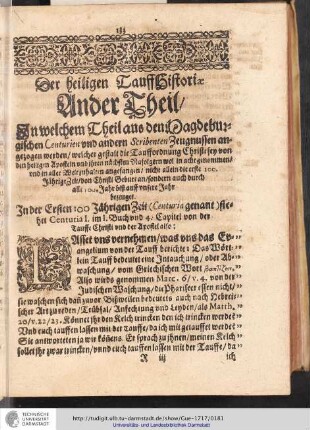 181
Der heiligen Tauff Historiæ
Ander Theil/
In welchem Theil aus den Magdebur-
gischen Centurien und andern Scribenten Zeugnussen an-
gezogen werden/ welcher gestalt die Tauffordnung Christi sey von
den heiligen Aposteln und ihren nächsten Nafolgern wol in acht genommen/
und in aller Welt anfangen/ nicht allein die erste 100.
Jährige Zeit von Christi Geburt an/ sondern auch durch
alle 100. Jahr biß auff unsere Jahr
bezeuget.
In der Ersten 100 Jährigen Zeit (Centuria genant) sie-
het Centuria I. im I. Buch und 4. Capitel von der
Tauffe Christi und der Apostel also:
LAsset uns vernehmen/ was uns das Ev-
angelium von der Tauff berichte: Das Wört-
lein Tauff bedeutet eine Intauchung/ oder Ab-
waschung/ vom Griechischen Wort
Also wirds genommen Marc. 6/ v. 4. von der
Judischen Waschung/ die Phariseer essen nicht/
sie waschen sich dañ zuvor. Bißweilen bedeutets auch nach Hebrei-
scher Art zu reden/ Trübsal/ Anfechtung und Leyden/ als Matth.
20/ v. 22/ 23. Könnet ihr den Kelch trincken den ich trincken werde?
Und euch tauffen lassen mit der Tauffe/ da ich mit getauffet werde?
Sie antworteten ja wir könens. Er sprach zu ihnen/ meinen Kelch
sollet ihr zwar trincken/ unnd euch tauffen lassen mit der Tauffe/ da
R iij
ich
TECHNISCHE
UNIVERSITÄT
DARMSTADT
http://tudigit.ulb.tu-darmstadt.de/show/Gue-1717/0181
Universitäts- und Landesbibliothek Darmstadt